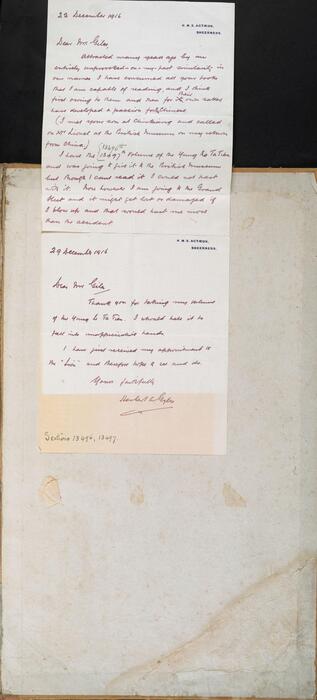 22 December 1916
H.M.S. ACTÆON,
SHEERNESS.
Dear Mr. Giles,
Attracted many years ago by an
entirely unprovoked on my part similarity in
our names I have consumed all your books
that I am capable of reading, and I think
first owing to them and then for their own sakes
have developed a passion for
(I met your son at and called
on Mr Lionel at the British Museum on my return
from China.)
I have the 13497th (13496th) volume of the Yung Lo Ta Tien
and was going to give it to the British Museum
but though I can't read it I could not part
with it. Now however I am going to the Grand
Fleet and it might get lost or damaged if
I blow up and that would hurt me more
than the accident
H.M.S. ACTÆON,
SHEERNESS.
29 December 1916
Dear Mr Giles,
Thank you for taking my volume
of the Yung Lo Ta Tien. I should hate it to
fall into unappreciative hands.
I have just received my appointment to
the "Lion" and therefore hope to see and do.
Yours faithfully
Sections 13496, 13497